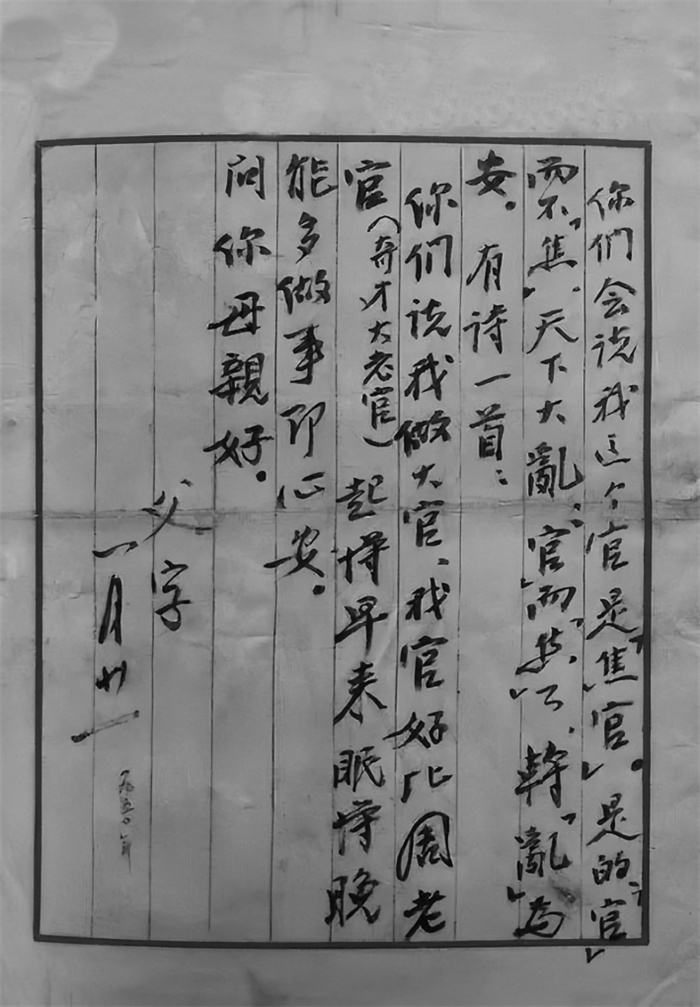 你們会说我这个官是“焦官”。是的，“官”
而不“焦”，天下大亂；“官”而“焦”了，转“亂”为
安。有诗一首：
你们说我做大官，我官好比周老
官（奇才大老官）起得早来眠得晚
能多做事即心安。
问你母親好。
父字
一月廿一
一九五〇年